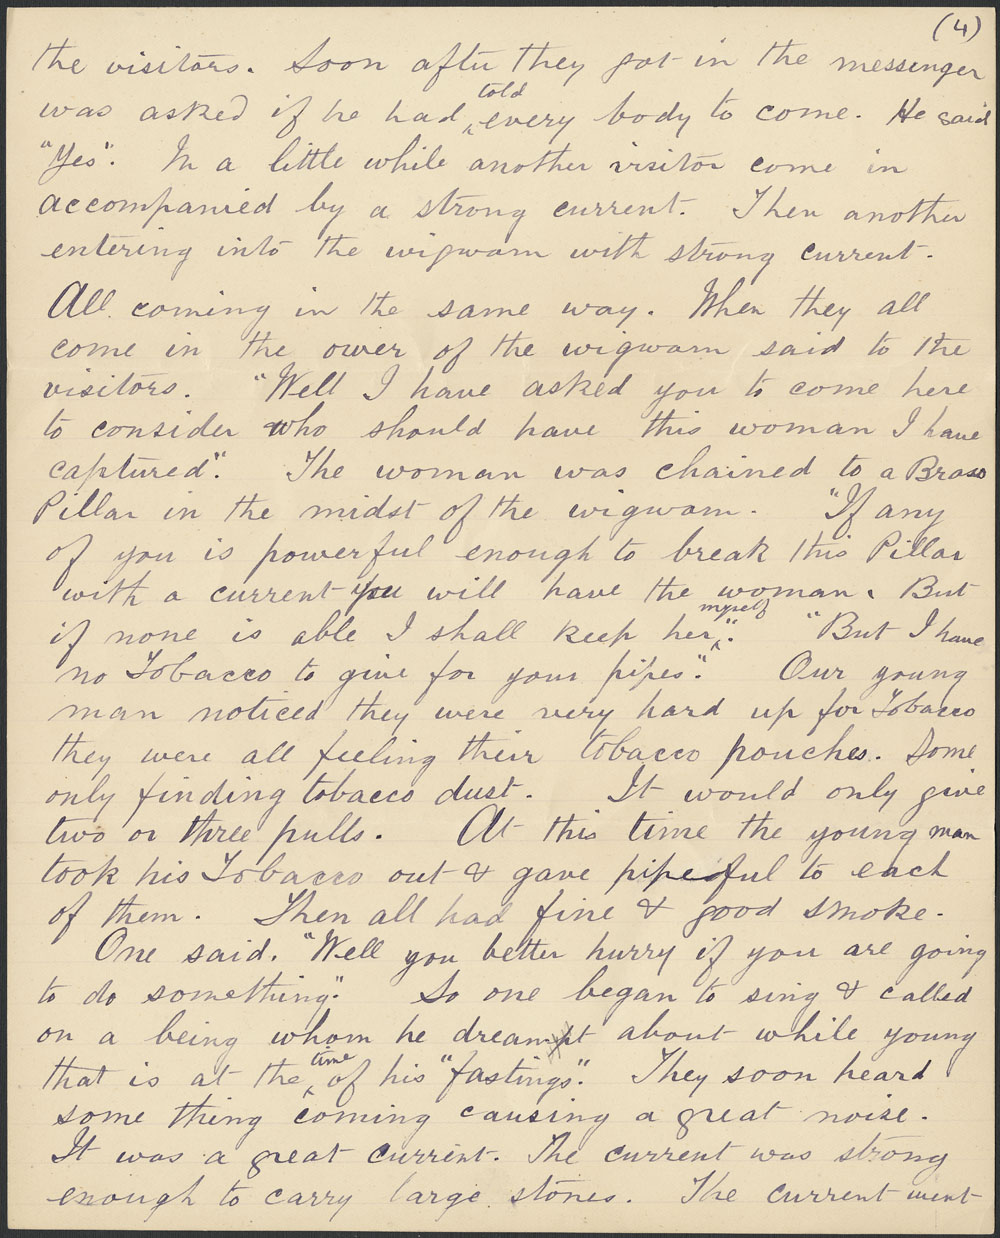 (4)
the visitors. Soon after they got in the messenger
was asked if he had told every body to come. He said
"Yes". In a little while another visitor come in
accompanied by a strong current. Then another
entering into the wigwam with strong current.
All coming in the same way. When they all
come in the ower of the wigwam said to the
visitors. "Well I have asked you to come here
to consider who should have this woman I have
captured". The woman was chained to a Brass
Pillar in the midst of the wigwam. "If any
of you is powerful enough to break this Pillar
with a current you will have the woman. But
if none is able I shall keep her myself". "But I have
no Tobacco to give for your pipes". Our young
man noticed they were very hard up for Tobacco
they were all feeling their tobacco pouches. Some
only finding tobacco dust. It would only give
two or three pulls. At this time the young man
took his Tobacco out & gave pipeful to each
of them. Then all had fine & good smoke.
One said. "Well you better hurry if you are going
to do something". So one began to sing & called
on a being whom he dreamt about while young
that is at the time of his "fastings". They soon heard
some thing coming causing a great noise.
It was a great current. The current was strong
enough to carry large stones. The current went